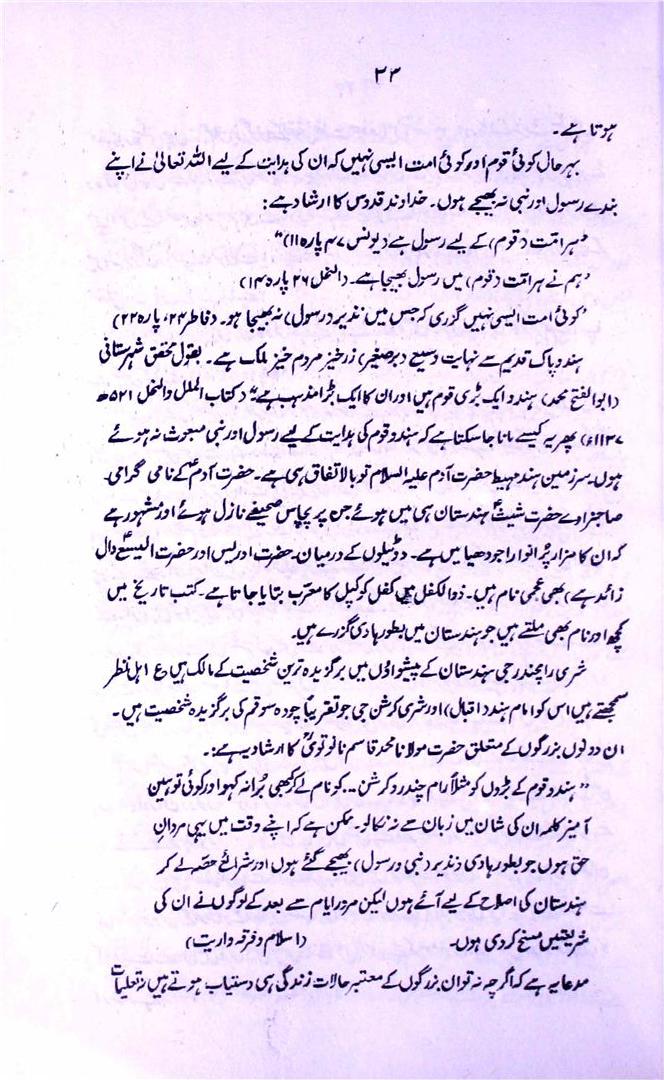 ۲۴
ہوتا ہے۔
بہر حال کوئی قوم اور کوئی امت ایسی نہیں کہ ان کی ہدایت کے لیے اللہ تعالیٰ نے اپنے
بندے رسول اور نبی نہ بھیجے ہوں۔ خداوند قدوس کا ارشاد ہے:
"ہر امّت (قوم) کے لیے رسول ہے (یونس ۴۷ پارہ ۱۱)"
"ہم نے ہر امّت (قوم) میں رسول بھیجا ہے۔ (النحل ۲۶ پارہ ۱۴)
"کوئی امت ایسی نہیں گزری کہ جس میں نذیر (رسول) نہ بھیجا ہو۔ (فاطر ۲۴، پارہ ۲۲)
ہند و پاک قدیم سے نہایت وسیع (برصغیر) زرخیز مردم خیز ملک ہے۔ بقول محقق شہرستانی
(ابو الفتح محمد) ہندو ایک بڑی قوم ہیں اور ان کا ایک بڑا مذہب ہے" (کتاب الملل والنحل ۵۲۱ھ
۱۱۳۷ء) پھر یہ کیسے مانا جا سکتا ہے کہ ہندو قوم کی ہدایت کے لیے رسول اور نبی مبعوث نہ ہوئے
ہوں۔ سرزمین ہند مہبط حضرت آدم علیہ السلام تو بالاتفاق ہی ہے۔ حضرت آدمؑ کے نامی گرامی۔
صاحبزادے حضرت شیثؑ ہندستان ہی میں ہوئے جن پر پچاس صحیفے نازل ہوئے اور مشہور ہے
کہ ان کا مزار پُر انوار اجودھیا میں ہے۔ دو ٹیلوں کے درمیان۔ حضرت ادریس اور حضرت الیسعؑ (ال
زائد ہے) بھی عجمی نام ہیں۔ ذوالکفل میں کفل کو کپل کا معرّب بتایا جاتا ہے۔ کتب تاریخ میں
کچھ اور نام بھی ملتے ہیں جو ہندستان میں بطور ہادی گزرے ہیں۔
شری رامچندر جی ہندستان کے پیشواؤں میں برگزیدہ ترین شخصیت کے مالک ہیں ع اہل نظر
سمجھتے ہیں اس کو امام ہند (اقبال) اور شری کرشن جی جو تقریباً چودہ سو ق م کی برگزیدہ شخصیت ہیں۔
ان دونوں بزرگوں کے متعلق حضرت مولانا محمد قاسم نانوتویؒ کا ارشاد یہ ہے:۔
"ہندو قوم کے بڑوں کو مثلاً رام چندر و کرشن ... کو نام لے کر کبھی بُرا نہ کہو اور کوئی توہین
آمیز کلمہ ان کی شان میں زبان سے نہ نکالو۔ ممکن ہے کہ اپنے وقت میں یہی مردانِ
حق ہوں جو بطور ہادی (نذیر) (نبی و رسول) بھیجے گئے ہوں اور شرائع حقّہ لے کر
ہندستان کی اصلاح کے لیے آئے ہوں لیکن مرورِ ایام سے بعد کے لوگوں نے ان کی
شریعتیں مسخ کر دی ہوں۔ (اسلام و فرقہ واریت)
مدعا یہ ہے کہ اگرچہ نہ تو ان بزرگوں کے معتبر حالات زندگی ہی دستیاب ہوتے ہیں نہ تعلیمات